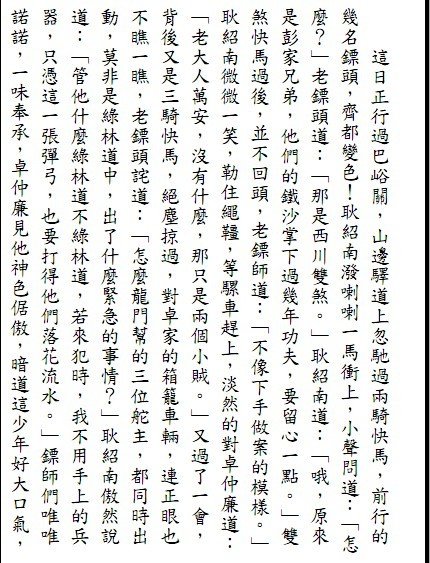 這日正行過巴峪關，山邊驛道上忽馳過兩騎快馬，前行的
幾名鏢頭，齊都變色！耿紹南潑喇喇一馬衝上，小聲問道：「怎
麼？」老鏢頭道：「那是西川雙煞。」耿紹南道：「哦，原來
是彭家兄弟，他們的鐵沙掌下過幾年功夫，要留心一點。」雙
煞快馬過後，並不回頭，老鏢師道：「不像下手做案的模樣。」
耿紹南微微一笑，勒住繩韁，等騾車趕上，淡然的對卓仲廉道：
「老大人萬安，沒有什麼，那只是兩個小賊。」又過了一會，
背後又是三騎快馬，絕塵掠過，對卓家的箱籠車輛，連正眼也
不瞧一瞧，老鏢頭詫道：「怎麼龍門幫的三位舵主，都同時出
動，莫非是綠林道中，出了什麼緊急的事情？」耿紹南傲然說
道：「管他什麼綠林道不綠林道，若來犯時，我不用手上的兵
器，只憑這一張彈弓，也要打得他們落花流水。」鏢師們唯唯
諾諾，一味奉承，卓仲廉見他神色倨傲，暗道這少年好大口氣，